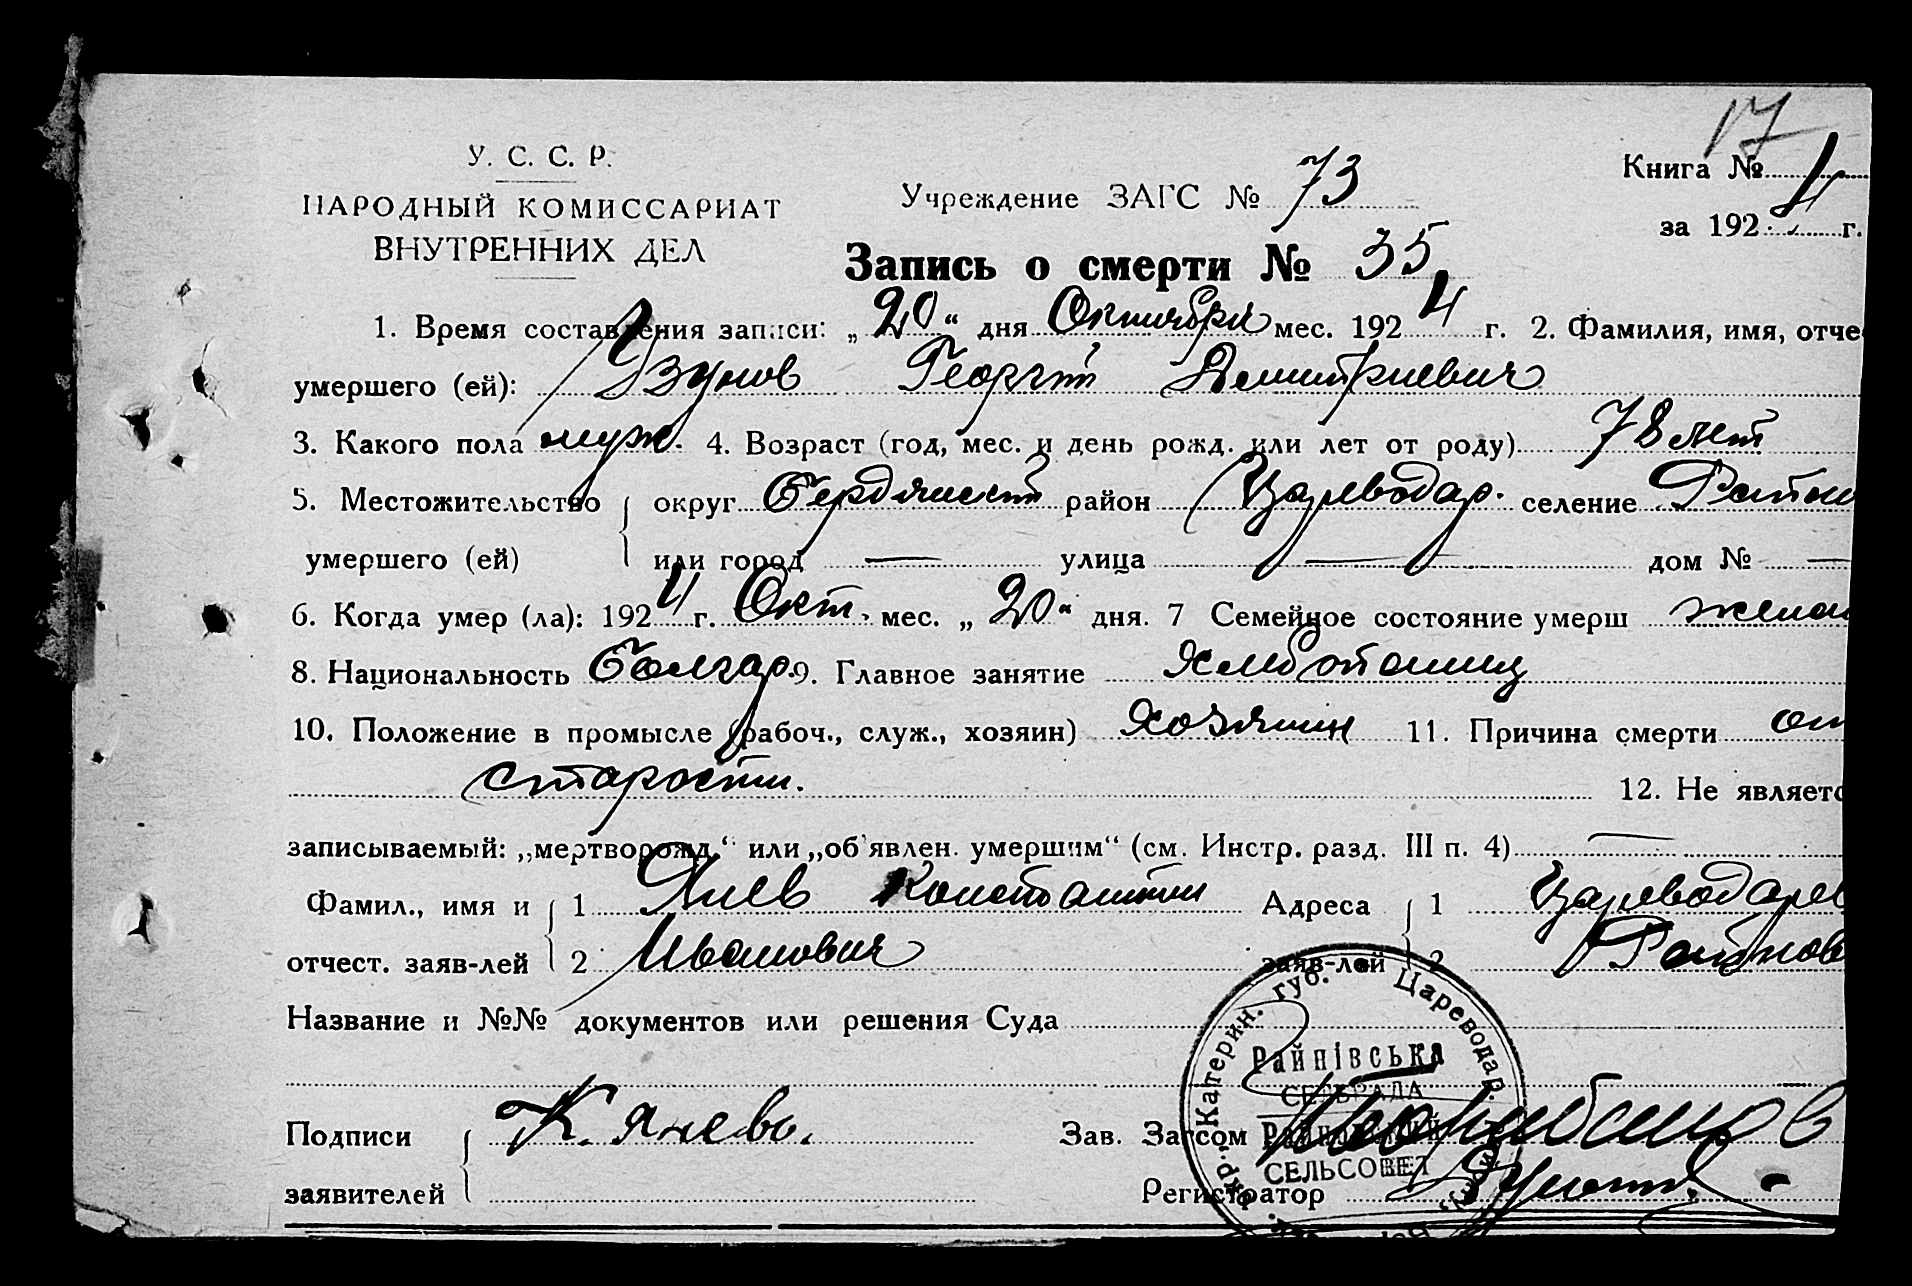 17
У. С. С. Р.
НАРОДНЫЙ КОМИССАРИАТ
ВНУТРЕННИХ ДЕЛ
Учреждение ЗАГС № 73
Книга № 1
за 1924 г.
Запись о смерти № 35
1. Время составления записи: „20“ дня Октября мес. 1924 г. 2. Фамилия, имя, отче
умершего (ей): Узунов Георгий Демитриевич
3. Какого пола муж. 4. Возраст (год, мес. и день рожд. или лет от роду) 78 лет
5. Местожительство округ Бердянский район Цареводар. селение
умершего (ей) или город — улица — дом № —
6. Когда умер (ла): 1924 г. Окт. мес. „20“ дня. 7 Семейное состояние умерш женат
8. Национальность Болгар. 9. Главное занятие Хлебопашец
10. Положение в промысле (рабоч., служ., хозяин) хозяин 11. Причина смерти от
старости. 12. Не являетс
записываемый: „мертворожд.“ или „об'явлен. умершим“ (см. Инстр. разд. III п. 4) —
Фамил., имя и 1 Янев Константин Адреса 1 Цареводарс
отчест. заяв-лей 2 Иванович заяв-лей 2
Название и №№ документов или решения Суда
Подписи К. Яневъ.
заявителей
Зав. Загсом
Регистратор
Катерин. губ. Цареводар.
Райнівська
СЕЛЬРАДА
Райновский
СЕЛЬСОВЕТ
окр.